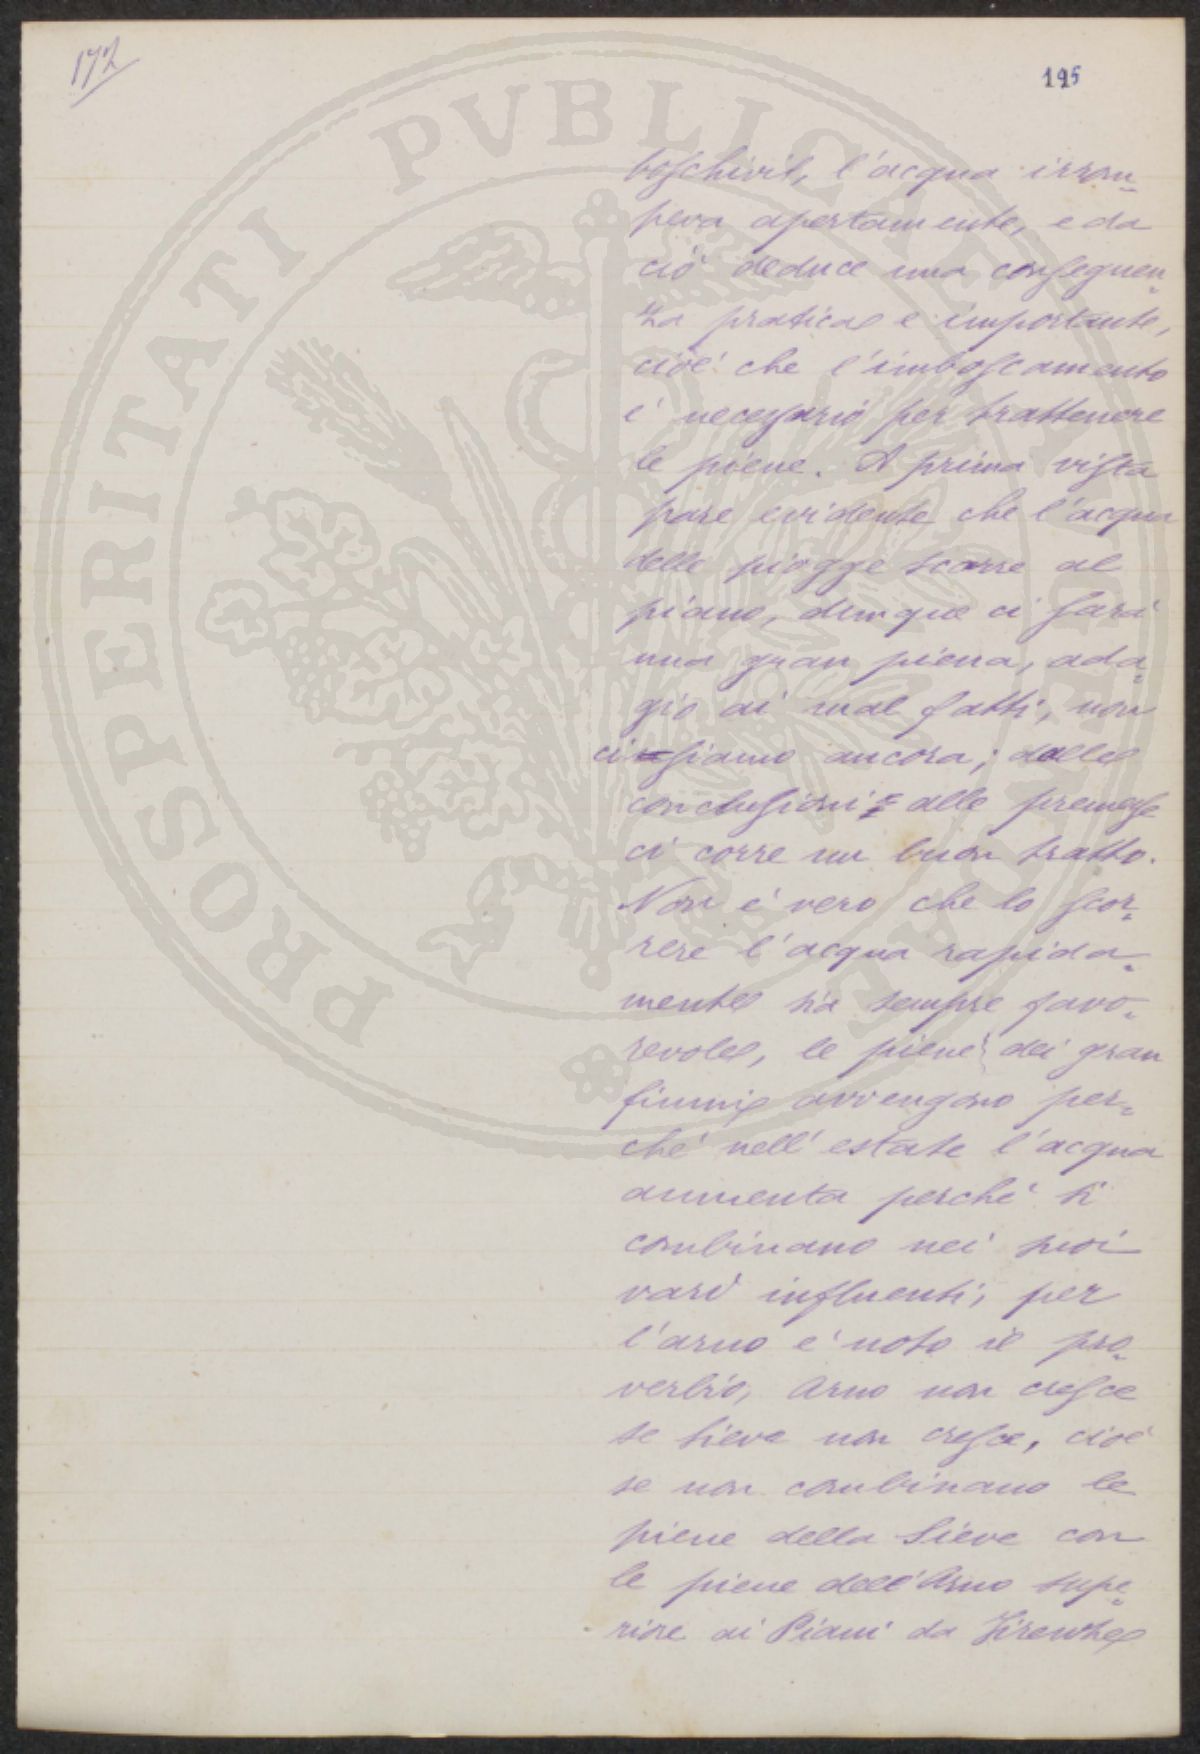 172
195
boschivit, l'acqua irrom=
peva apertamente, e da
ciò deduce una conseguen=
za pratica e importante,
cioè che l'imboscamento
è necessario per trattenere
le piene. A prima vista
pare evidente che l'acqua
delle piogge scorre al
piano, dunque ci sarà
una gran piena, ada=
gio ai mal fatti, non
ci siamo ancora; dalle
conclusioni alle premesse
ci corre un buon tratto.
Non è vero che lo scor=
rere l'acqua rapida=
mente sia sempre favo=
revole, le piene dei gran
fiumi avvengono per=
chè nell'estate l'acqua
aumenta perchè si
combinano nei suoi
vari influenti, per
l'arno è noto il pro=
verbio, Arno non cresce
se Sieve non cresce, cioè
se non combinano le
piene della Sieve con
le piene dell'Arno supe=
riore ai Piani da Firenze
PROSPERITATI PVBLICAE